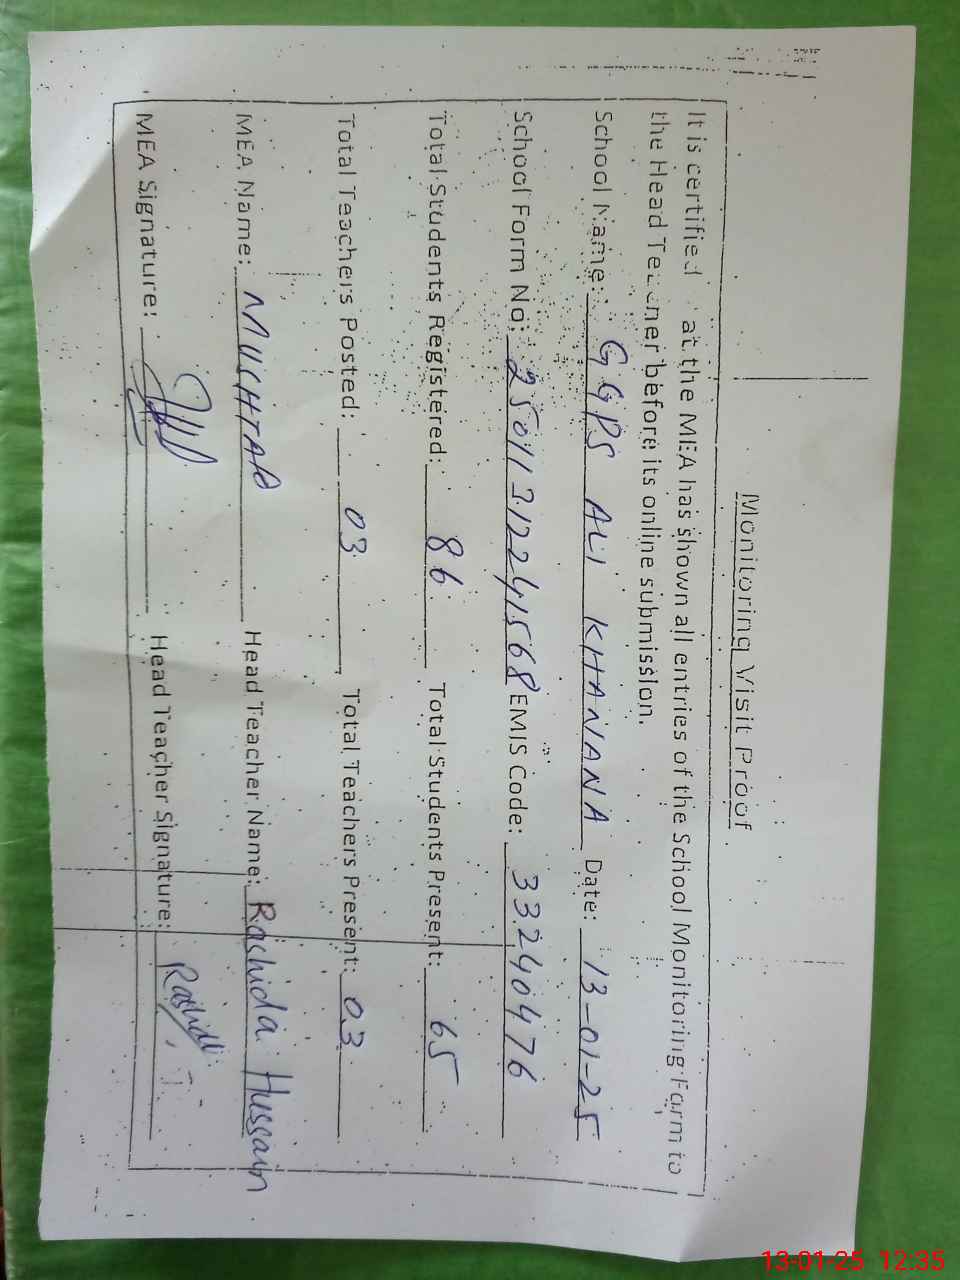 Monitoring Visit Proof
It is certified at the MEA has shown all entries of the School Monitoring Form to
the Head Teacher before its online submission.
School Name: GGPS ALI KHANANA Date: 13-01-25
School Form No: EMIS Code: 33240476
Total Students Registered: 86 Total Students Present: 65
Total Teachers Posted: 03 Total Teachers Present: 03
MEA Name: MUCHTAR Head Teacher Name: Rachida Hussain
MEA Signature: Head Teacher Signature:
13-01-25 12:35